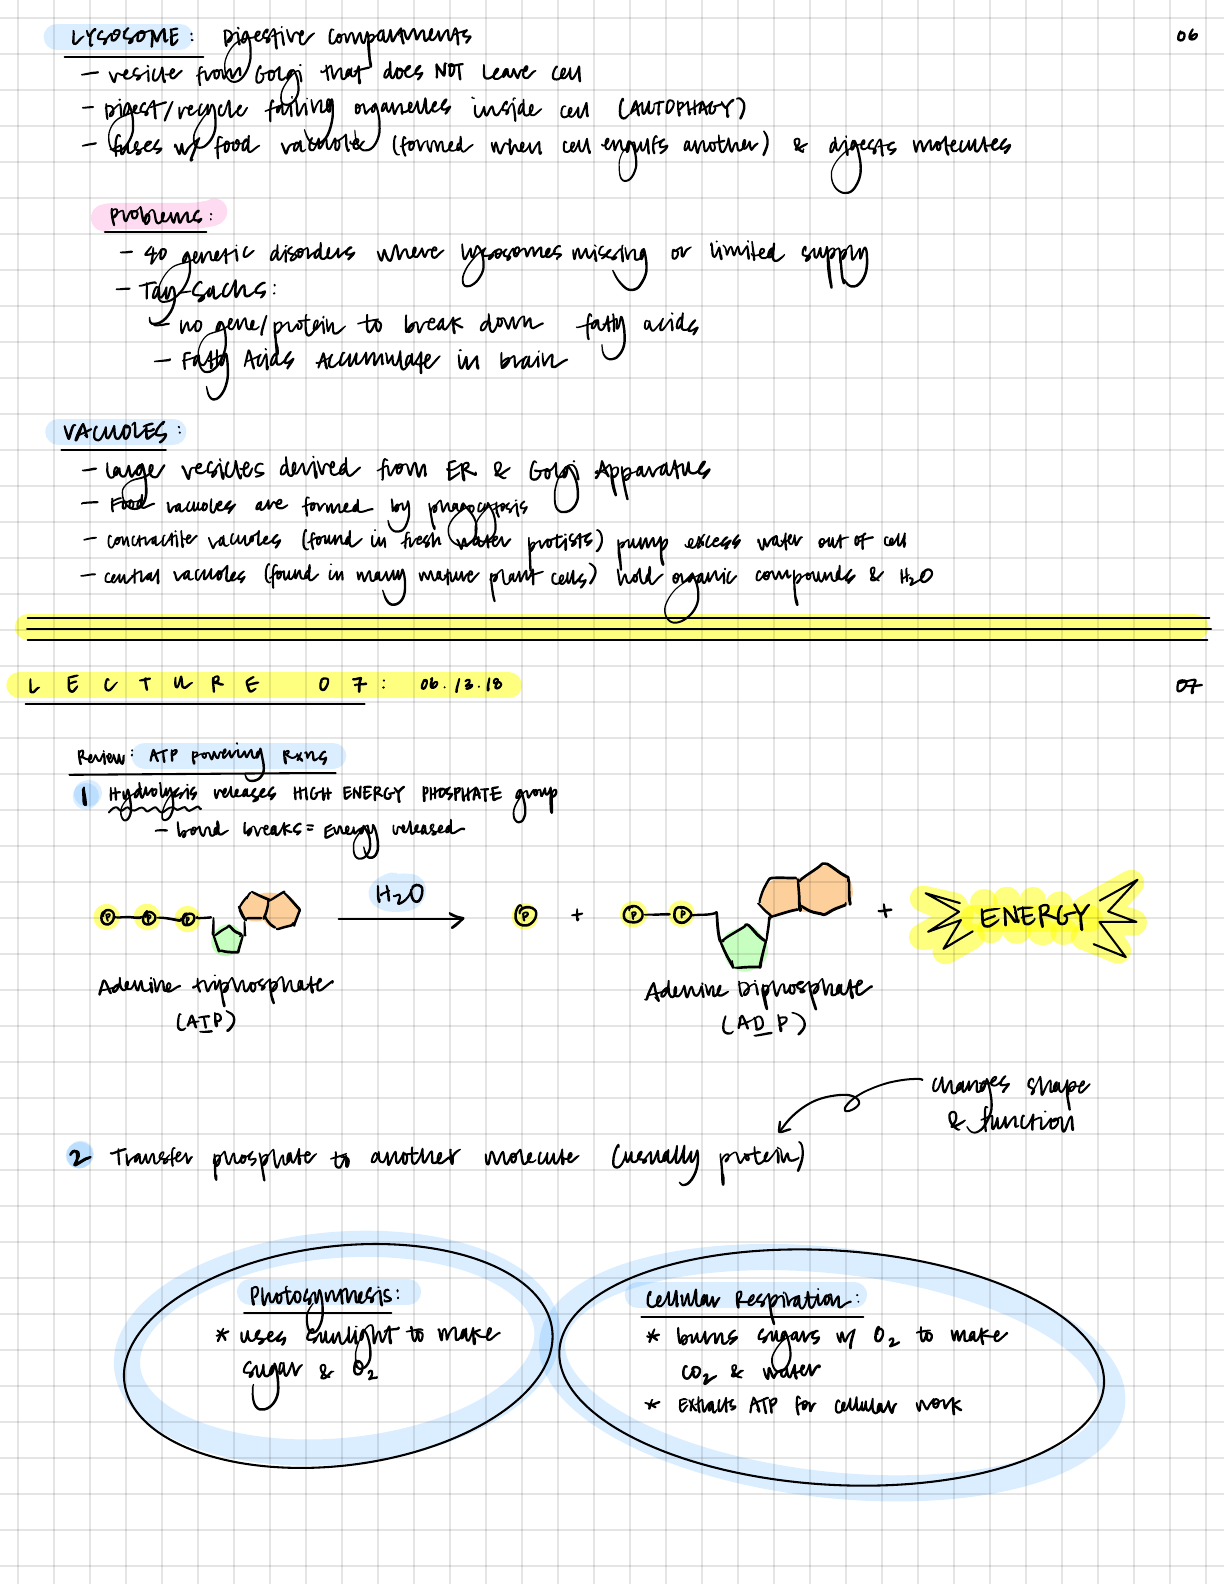 LYSOSOME: Digestive Compartments
06
- vesicle from Golgi that does NOT leave cell
- Digest/recycle failing organelles inside cell (AUTOPHAGY)
- fuses w/ food vacuole (formed when cell engulfs another) & digests molecules
Problems:
- 40 genetic disorders where lysosomes missing or limited supply
- Tay-Sachs:
- no gene/protein to break down fatty acids
- Fatty Acids Accumulate in brain
VACUOLES:
- large vesicles derived from ER & Golgi Apparatus
- Food vacuoles are formed by phagocytosis
- contractile vacuoles (found in fresh water protists) pump excess water out of cell
- central vacuoles (found in many mature plant cells) hold organic compounds & H₂O
LECTURE 07: 06.13.18
07
Review: ATP powering Rxns
1 Hydrolysis releases HIGH ENERGY PHOSPHATE group
- bond breaks = Energy released
P P P H₂O P + P P + ENERGY
Adenine triphosphate
(ATP)
Adenine Diphosphate
(ADP)
changes shape
& function
2 Transfer phosphate to another molecule (usually protein)
Photosynthesis:
* uses sunlight to make
sugar & O₂
Cellular Respiration:
* burns sugars w/ O₂ to make
CO₂ & water
* Extracts ATP for cellular work